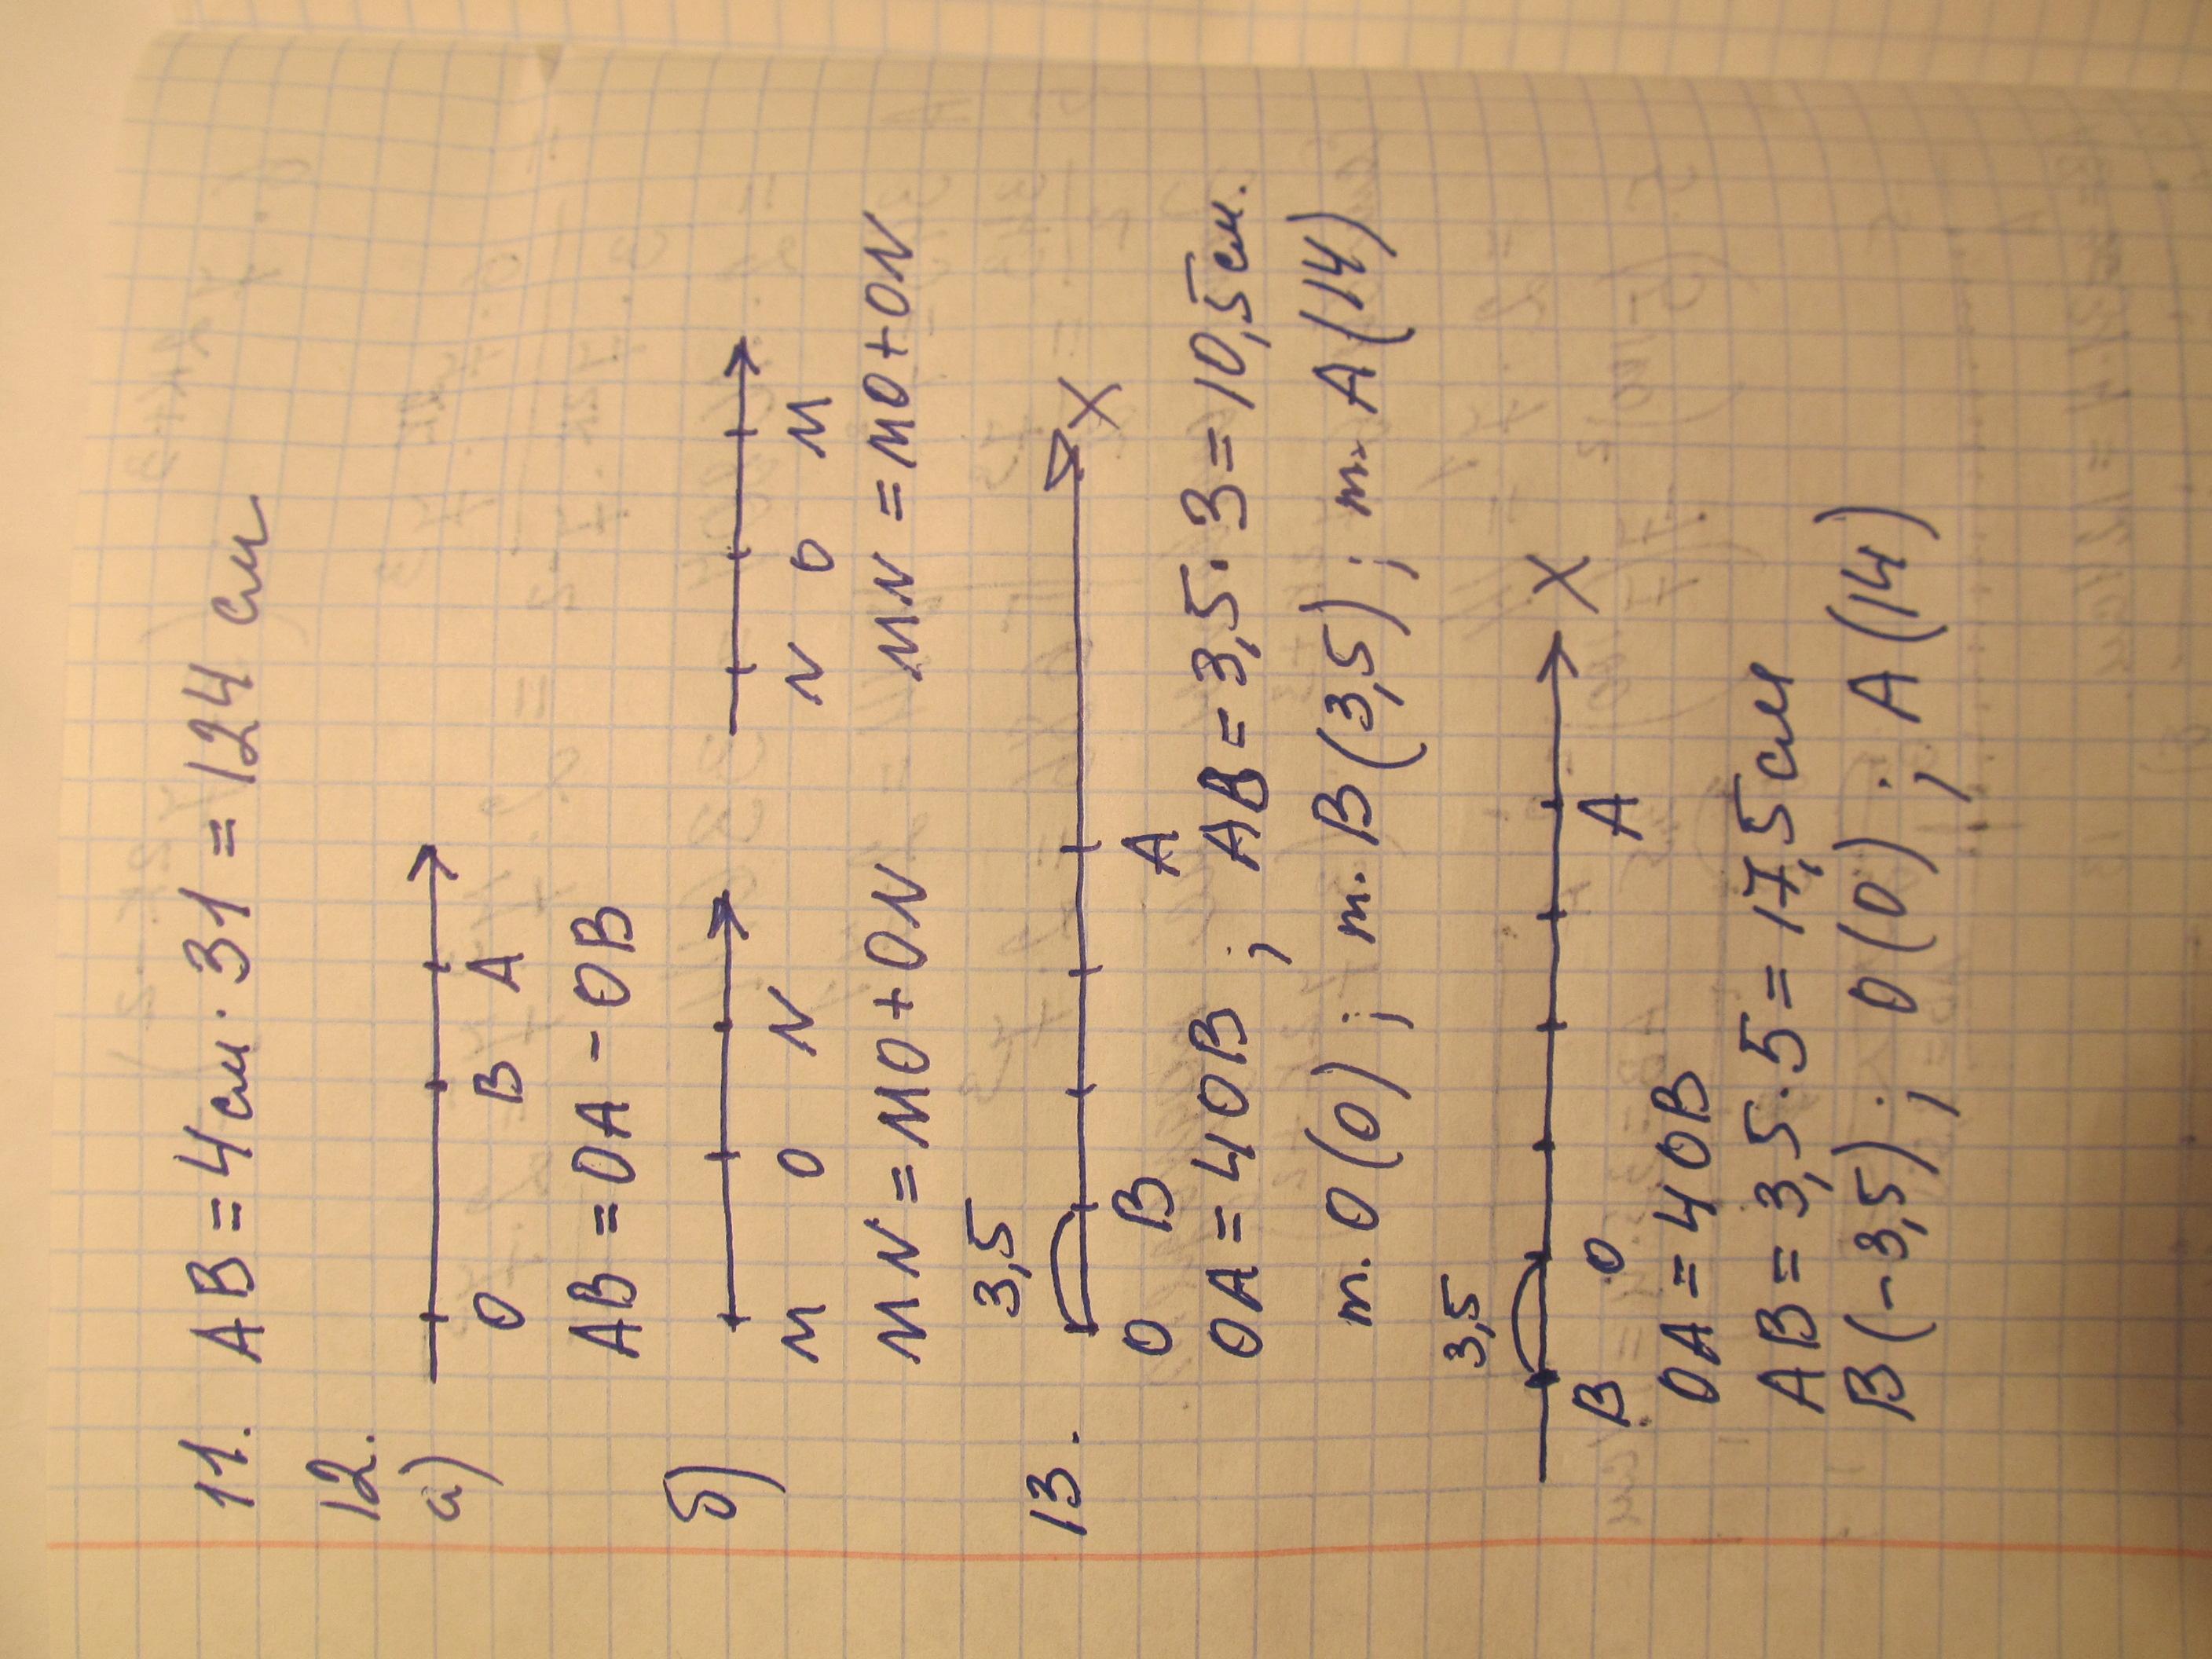 11. AB = 4см · 31 = 124 см
12.
а)
O B A
AB = OA - OB
б)
M O N N O M
MN = MO + ON MN = MO + ON
13.
3,5
O B A X
OA = 4OB ; AB = 3,5 · 3 = 10,5 см.
т. O(0) ; т. B(3,5) ; т. A(14)
3,5
B O A X
OA = 4OB
AB = 3,5 · 5 = 17,5 см
B(-3,5) ; O(0) ; A(14)